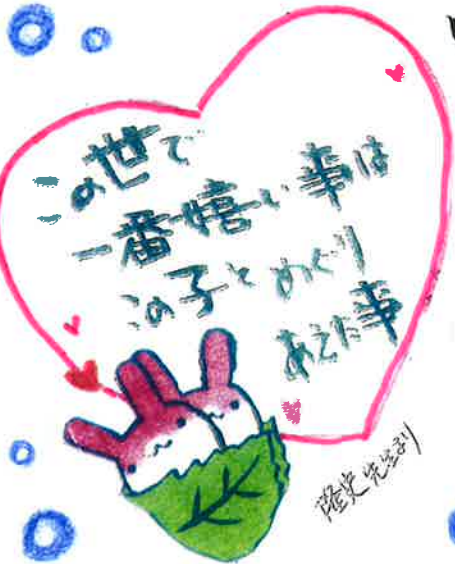 この世で
一番嬉しい事は
この子とめぐり
あえた事
隆史先生より